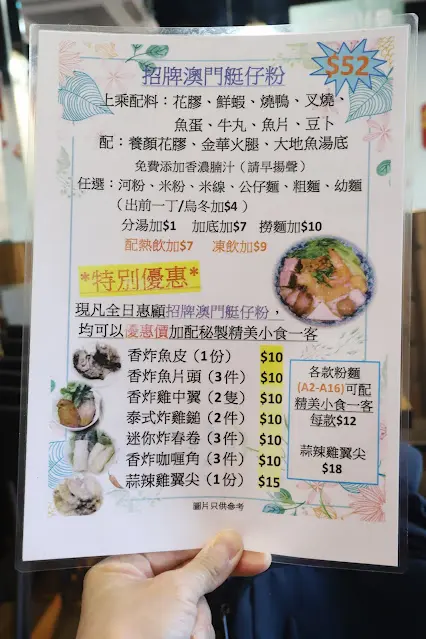 招牌澳門艇仔粉
$52
上乘配料：花膠、鮮蝦、燒鴨、叉燒、
魚蛋、牛丸、魚片、豆卜
配：養顏花膠、金華火腿、大地魚湯底
免費添加香濃腩汁（請早揚聲）
任選：河粉、米粉、米線、公仔麵、粗麵、幼麵
（出前一丁/烏冬加$4 ）
分湯加$1 加底加$7 撈麵加$10
配熱飲加$7 凍飲加$9
*特別優惠*
現凡全日惠顧招牌澳門艇仔粉，
均可以優惠價加配秘製精美小食一客
香炸魚皮（1份） $10
香炸魚片頭（3件） $10
香炸雞中翼（2隻） $10
泰式炸雞鎚（2件） $10
迷你炸春卷（3件） $10
香炸咖喱角（3件） $10
蒜辣雞翼尖（1份） $15
各款粉麵
(A2-A16)可配
精美小食一客
每款$12
蒜辣雞翼尖
$18
圖片只供參考